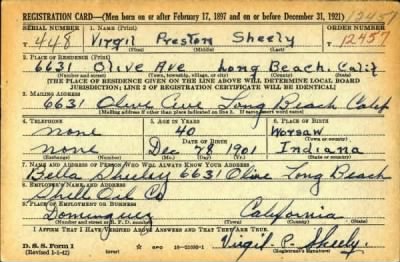 REGISTRATION CARD—(Men born on or after February 17, 1897 and on or before December 31, 1921)
SERIAL NUMBER 1. NAME (Print) ORDER NUMBER
T 448 Virgil Preston Sheely 12457
(First) (Middle) (Last)
2. PLACE OF RESIDENCE (Print)
6631 Olive Ave Long Beach, Calif
(Number and street) (Town, township, village, or city) (County) (State)
[THE PLACE OF RESIDENCE GIVEN ON THE LINE ABOVE WILL DETERMINE LOCAL BOARD
JURISDICTION; LINE 2 OF REGISTRATION CERTIFICATE WILL BE IDENTICAL]
3. MAILING ADDRESS
6631 Olive Ave Long Beach Calif
[Mailing address if other than place indicated on line 2. If same insert word same]
4. TELEPHONE 5. AGE IN YEARS 6. PLACE OF BIRTH
none 40 Worsaw
DATE OF BIRTH (Town or county)
none Dec 28 1901 Indiana
(Exchange) (Number) (Mo.) (Day) (Yr.) (State or country)
7. NAME AND ADDRESS OF PERSON WHO WILL ALWAYS KNOW YOUR ADDRESS
Bella Sheeley 6631 Olive Long Beach
8. EMPLOYER'S NAME AND ADDRESS
Shell Oil Co
9. PLACE OF EMPLOYMENT OR BUSINESS
Dominguez California
(Number and street or R. F. D. number) (Town) (County) (State)
I AFFIRM THAT I HAVE VERIFIED ABOVE ANSWERS AND THAT THEY ARE TRUE.
D. S. S. Form 1 (over) GPO 16—21630-1 Virgil. P. Sheely.
(Revised 1-1-42) (Registrant's signature)